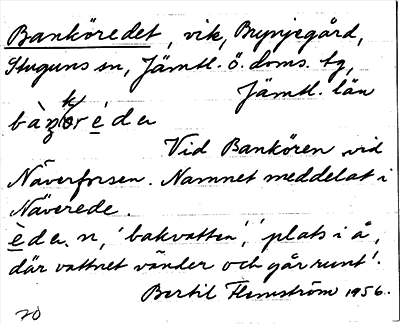 Banköredet, vik, Brynjegård,
Stuguns sn, Jämtl. ö. doms. tg,
Jämtl. län
Vid Bankören vid
Näverforsen. Namnet meddelat i
Näverede.
èda n, 'bakvatten', 'plats i å,
där vattnet vänder och går runt'.
Bertil Flemström 1956.
20